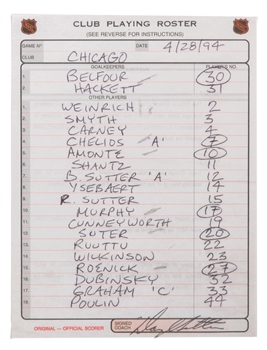 CLUB PLAYING ROSTER
(SEE REVERSE FOR INSTRUCTIONS)
GAME Nº DATE 4/28/94
CLUB CHICAGO
GOALKEEPERS PLAYERS NO.
1. BELFOUR 30
2. HACKETT 31
OTHER PLAYERS
1. WEINRICH 2
2. SMYTH 3
3. CARNEY 4
4. CHELIOS "A" 7
5. AMONTE 10
6. SHANTZ 11
7. B. SUTTER "A" 12
8. YSEBAERT 14
9. R. SUTTER 15
10. MURPHY 17
11. CUNNEYWORTH 19
12. SUTER 20
13. RUUTTU 22
14. WILKINSON 23
15. ROENICK 27
16. DUBINSKY 32
17. GRAHAM "C" 33
18. POULIN 44
ORIGINAL — OFFICIAL SCORER SIGNED COACH